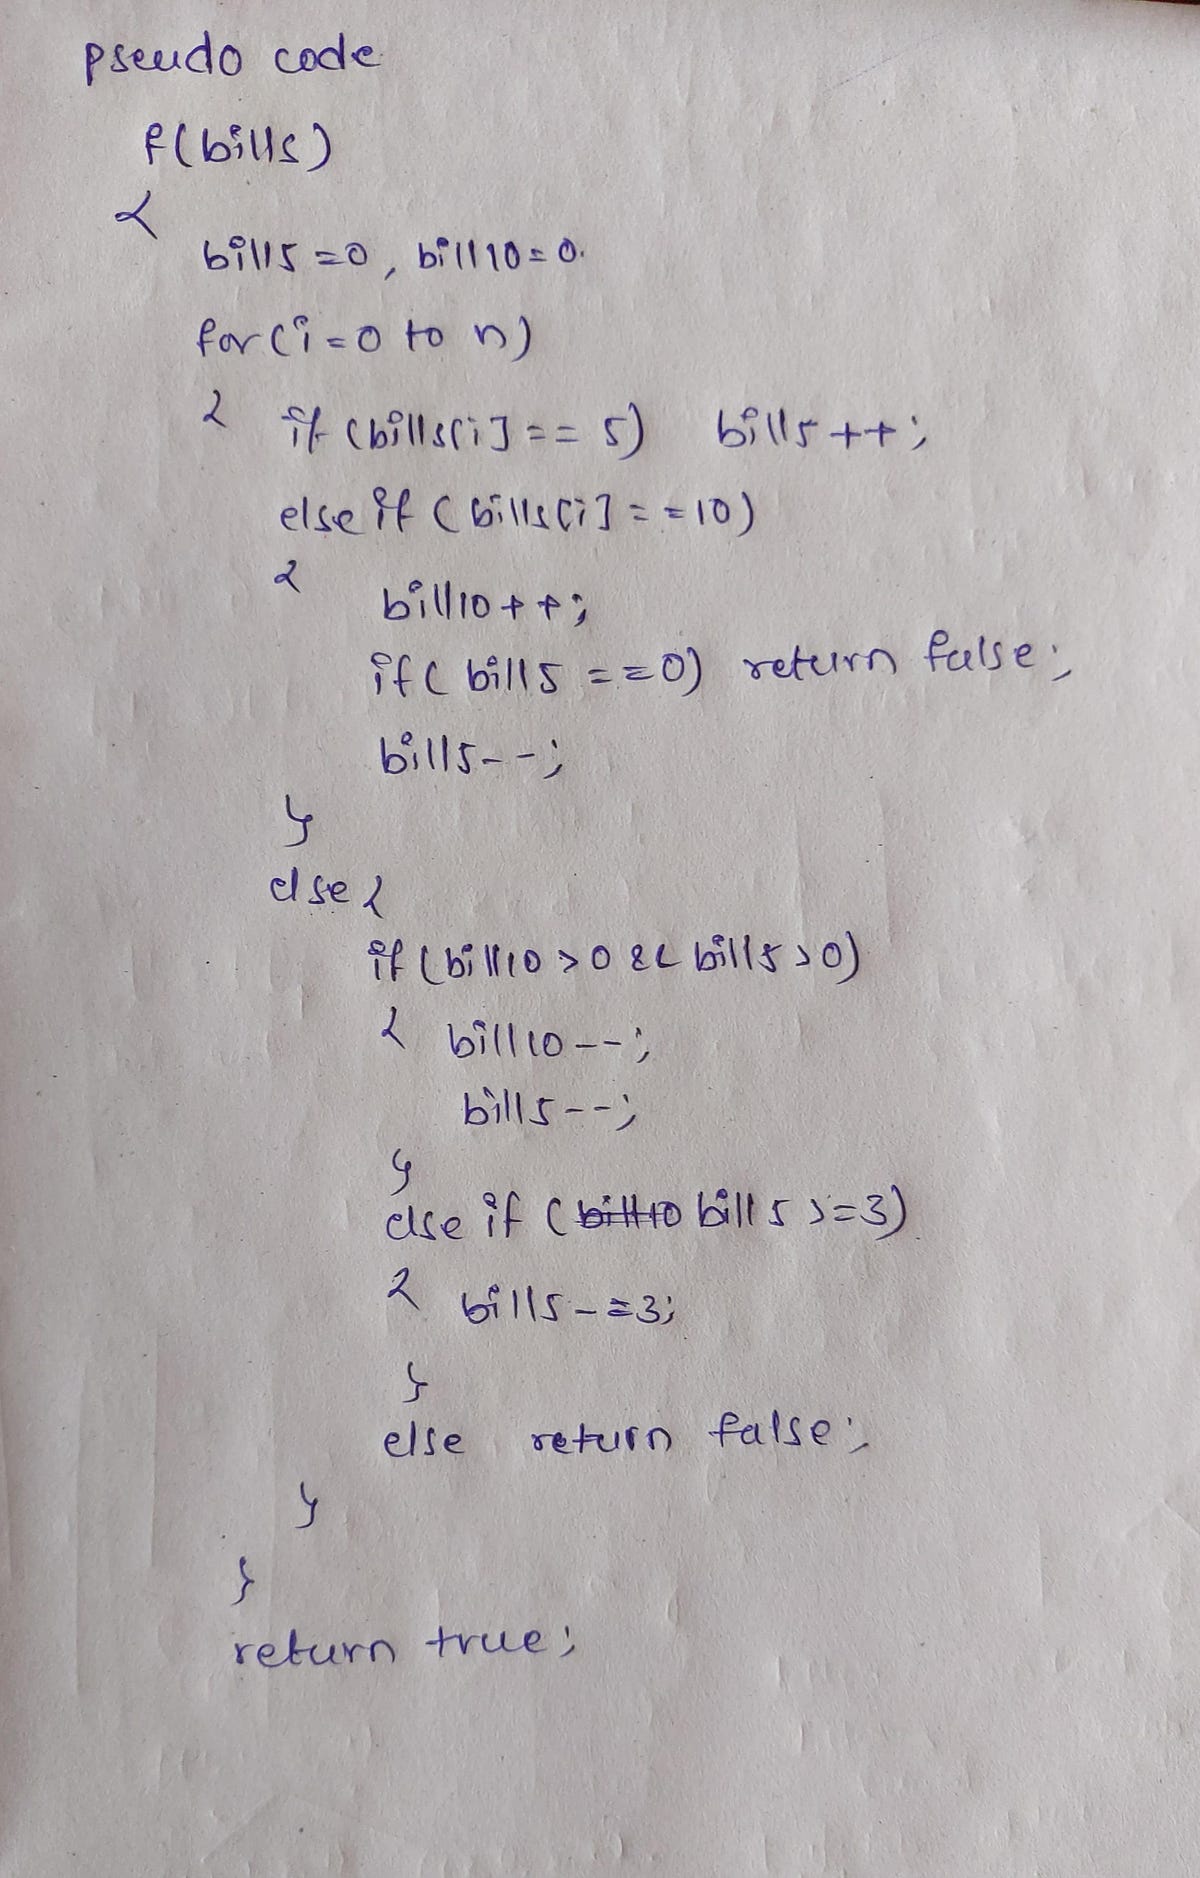 pseudo code
f(bills)
{
bill5 = 0, bill10 = 0.
for(i = 0 to n)
{ if (bills[i] == 5) bill5++;
else if (bills[i] == 10)
{ bill10++;
if( bill5 == 0) return false;
bill5--;
}
else {
if (bill10 > 0 && bill5 > 0)
{ bill10--;
bill5--;
}
else if (bill10 bill5 >= 3)
{ bill5 -= 3;
}
else return false;
}
}
return true;